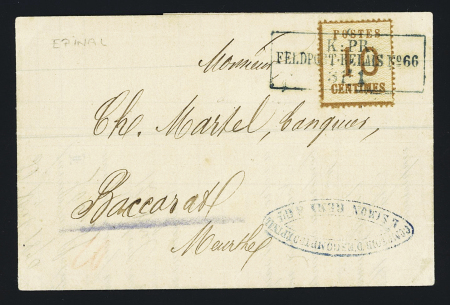 EPINAL
POSTES
10
CENTIMES
K:PR.
FELDPOST-RELAIS No 66
Monsieur
Ch. Martel, banquier,
Baccarat
Meurthe